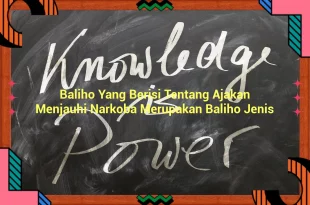 Knowledge
is
Power
Baliho Yang Berisi Tentang Ajakan
Menjauhi Narkoba Merupakan Baliho Jenis